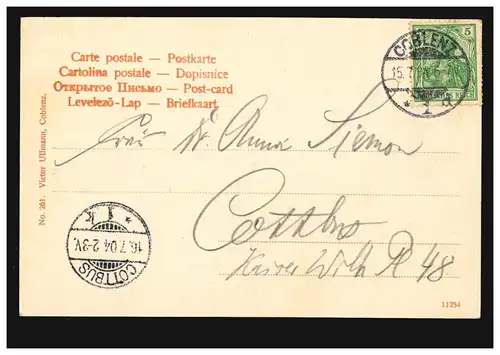 Carte postale — Postkarte
Cartolina postale — Dopisnice
Открытое Письмо — Post-card
Levelező-Lap — Briefkaart
COBLENZ
15.7.
5
Frau Dr. Anna Siemon
Cottbus
Kaiser Wilh. 48
COTTBUS
16.7.04 2-3V.
* 1 k
No. 201. Victor Ullmann, Coblenz.
11254